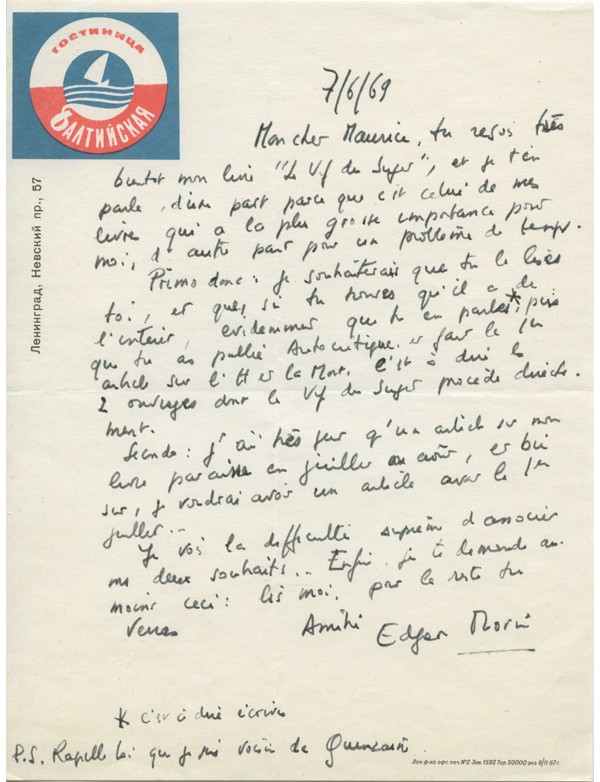 ГОСТИНИЦА
БАЛТИЙСКАЯ
Ленинград, Невский пр., 57
7/6/69
Mon cher Maurice, tu reçois très
bientot mon livre "Le Vif du Sujet", et je t'en
parle, d'une part parce que c'est celui de mes
livres qui a la plus grosse importance pour
moi, d'autre part pour un problème de temps.
Primo donc: je souhaiterais que tu le lises
toi, et que, si tu trouves qu'il a de
l'intérêt, evidemment que tu en parles*, puis
que tu as publié Autocritique et fait le 1er
article sur l'H et la Mort. C'est à dire les
2 ouvrages dont le Vif du Sujet procède directe-
ment.
Secundo: j'ai très peur qu'un article sur mon
livre paraisse en juillet ou août, et bien
sur, je voudrai avoir un article avant le 1er
juillet..
Je vois la difficulté suprème d'associer
mes deux souhaits... Enfin, je te demande au
moins ceci: lis moi, pour le reste tu
verras
Amitié Edgar Morin
* c'est à dire écrives
P.S. Rapelle toi que je suis voisin de
Лен. ф-ка офс. печ. №2 Зак. 1592 Тир. 50000 экз. 8/II-67 г.